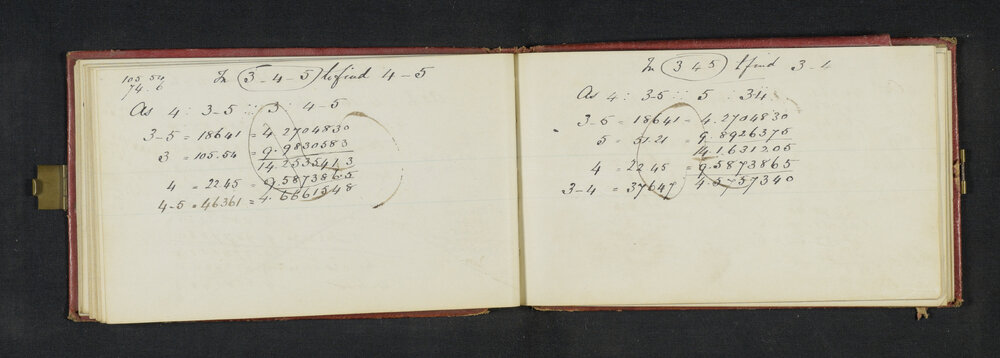 105.54
74.6
In 3-4-5 to find 4-5
As 4 : 3-5 :: 3 : 4-5
3-5 = 18641 = 4.2704830
3 = 105.54 = 9.9830583
14.2535413
4 = 22.45 = 9.5873865
4-5 = 46361 = 4.6661548
In 3 4 5 to find 3-4
As 4 : 3-5 :: 5 : 34
3-5 = 18641 = 4.2704830
5 = 51.21 = 9.8926375
14.1631205
4 = 22 45 = 9.5873865
3-4 = 37647 4.5757340